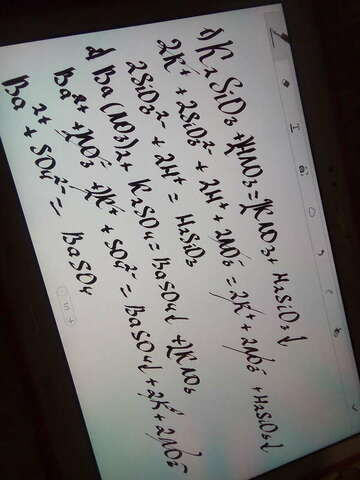 1) K2SiO3 + 2HNO3 = 2KNO3 + H2SiO3↓
2K⁺ + 2SiO3²⁻ + 2H⁺ + 2NO3⁻ = 2K⁺ + 2NO3⁻ + H2SiO3↓
2SiO3²⁻ + 2H⁺ = H2SiO3
2) Ba(NO3)2 + K2SO4 = BaSO4↓ + 2KNO3
Ba²⁺ + 2NO3⁻ + 2K⁺ + SO4²⁻ = BaSO4↓ + 2K⁺ + 2NO3⁻
Ba²⁺ + SO4²⁻ = BaSO4